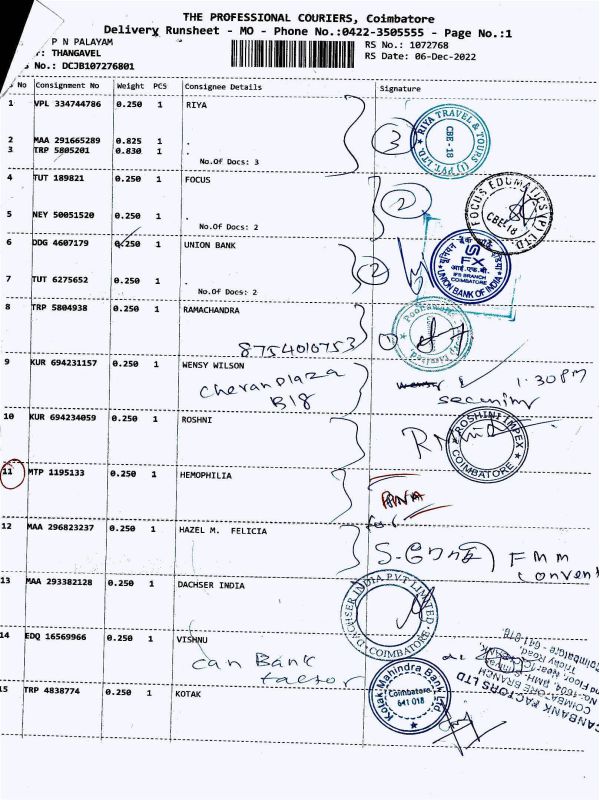 THE PROFESSIONAL COURIERS, Coimbatore
Delivery Runsheet - MO - Phone No.:0422-3505555 - Page No.:1
P N PALAYAM
: THANGAVEL
s No.: DCJB107276801
RS No.: 1072768
RS Date: 06-Dec-2022
No Consignment No Weight PCS Consignee Details Signature
1 VPL 334744786 0.250 1 RIYA
2 MAA 291665289 0.825 1 .
3 TRP 5805201 0.830 1 .
No.Of Docs: 3
3
RIYA TRAVEL & TOURS (I) PVT. LTD.
CBE - 18
4 TUT 189821 0.250 1 FOCUS
5 NEY 50051520 0.250 1 .
No.Of Docs: 2
2
FOCUS EDUMATICS (P) LTD
CBE-18
6 DDG 4607179 0.250 1 UNION BANK
7 TUT 6275652 0.250 1 .
No.Of Docs: 2
2
FX
आई.एफ.बी.
IFB BRANCH
COIMBATORE
UNION BANK OF INDIA
8 TRP 5804938 0.250 1 RAMACHANDRA
8754010753
1
9 KUR 694231157 0.250 1 WENSY WILSON
cheran plaza
B18
1.30PM
security
10 KUR 694234059 0.250 1 ROSHNI
ROSHINI IMPEX
COIMBATORE
11 MTP 1195133 0.250 1 HEMOPHILIA
12 MAA 296823237 0.250 1 HAZEL M. FELICIA
FMM
convent
13 MAA 293382128 0.250 1 DACHSER INDIA
DACHSER INDIA PVT LIMITED
COIMBATORE
14 EDQ 16569966 0.250 1 VISHNU
can Bank
factor
CANBANK FACTORS LTD
COIMBATORE BRANCH
Coimbatore - 641-018
15 TRP 4838774 0.250 1 KOTAK
Kotak Mahindra Bank Ltd.
Coimbatore
641 018